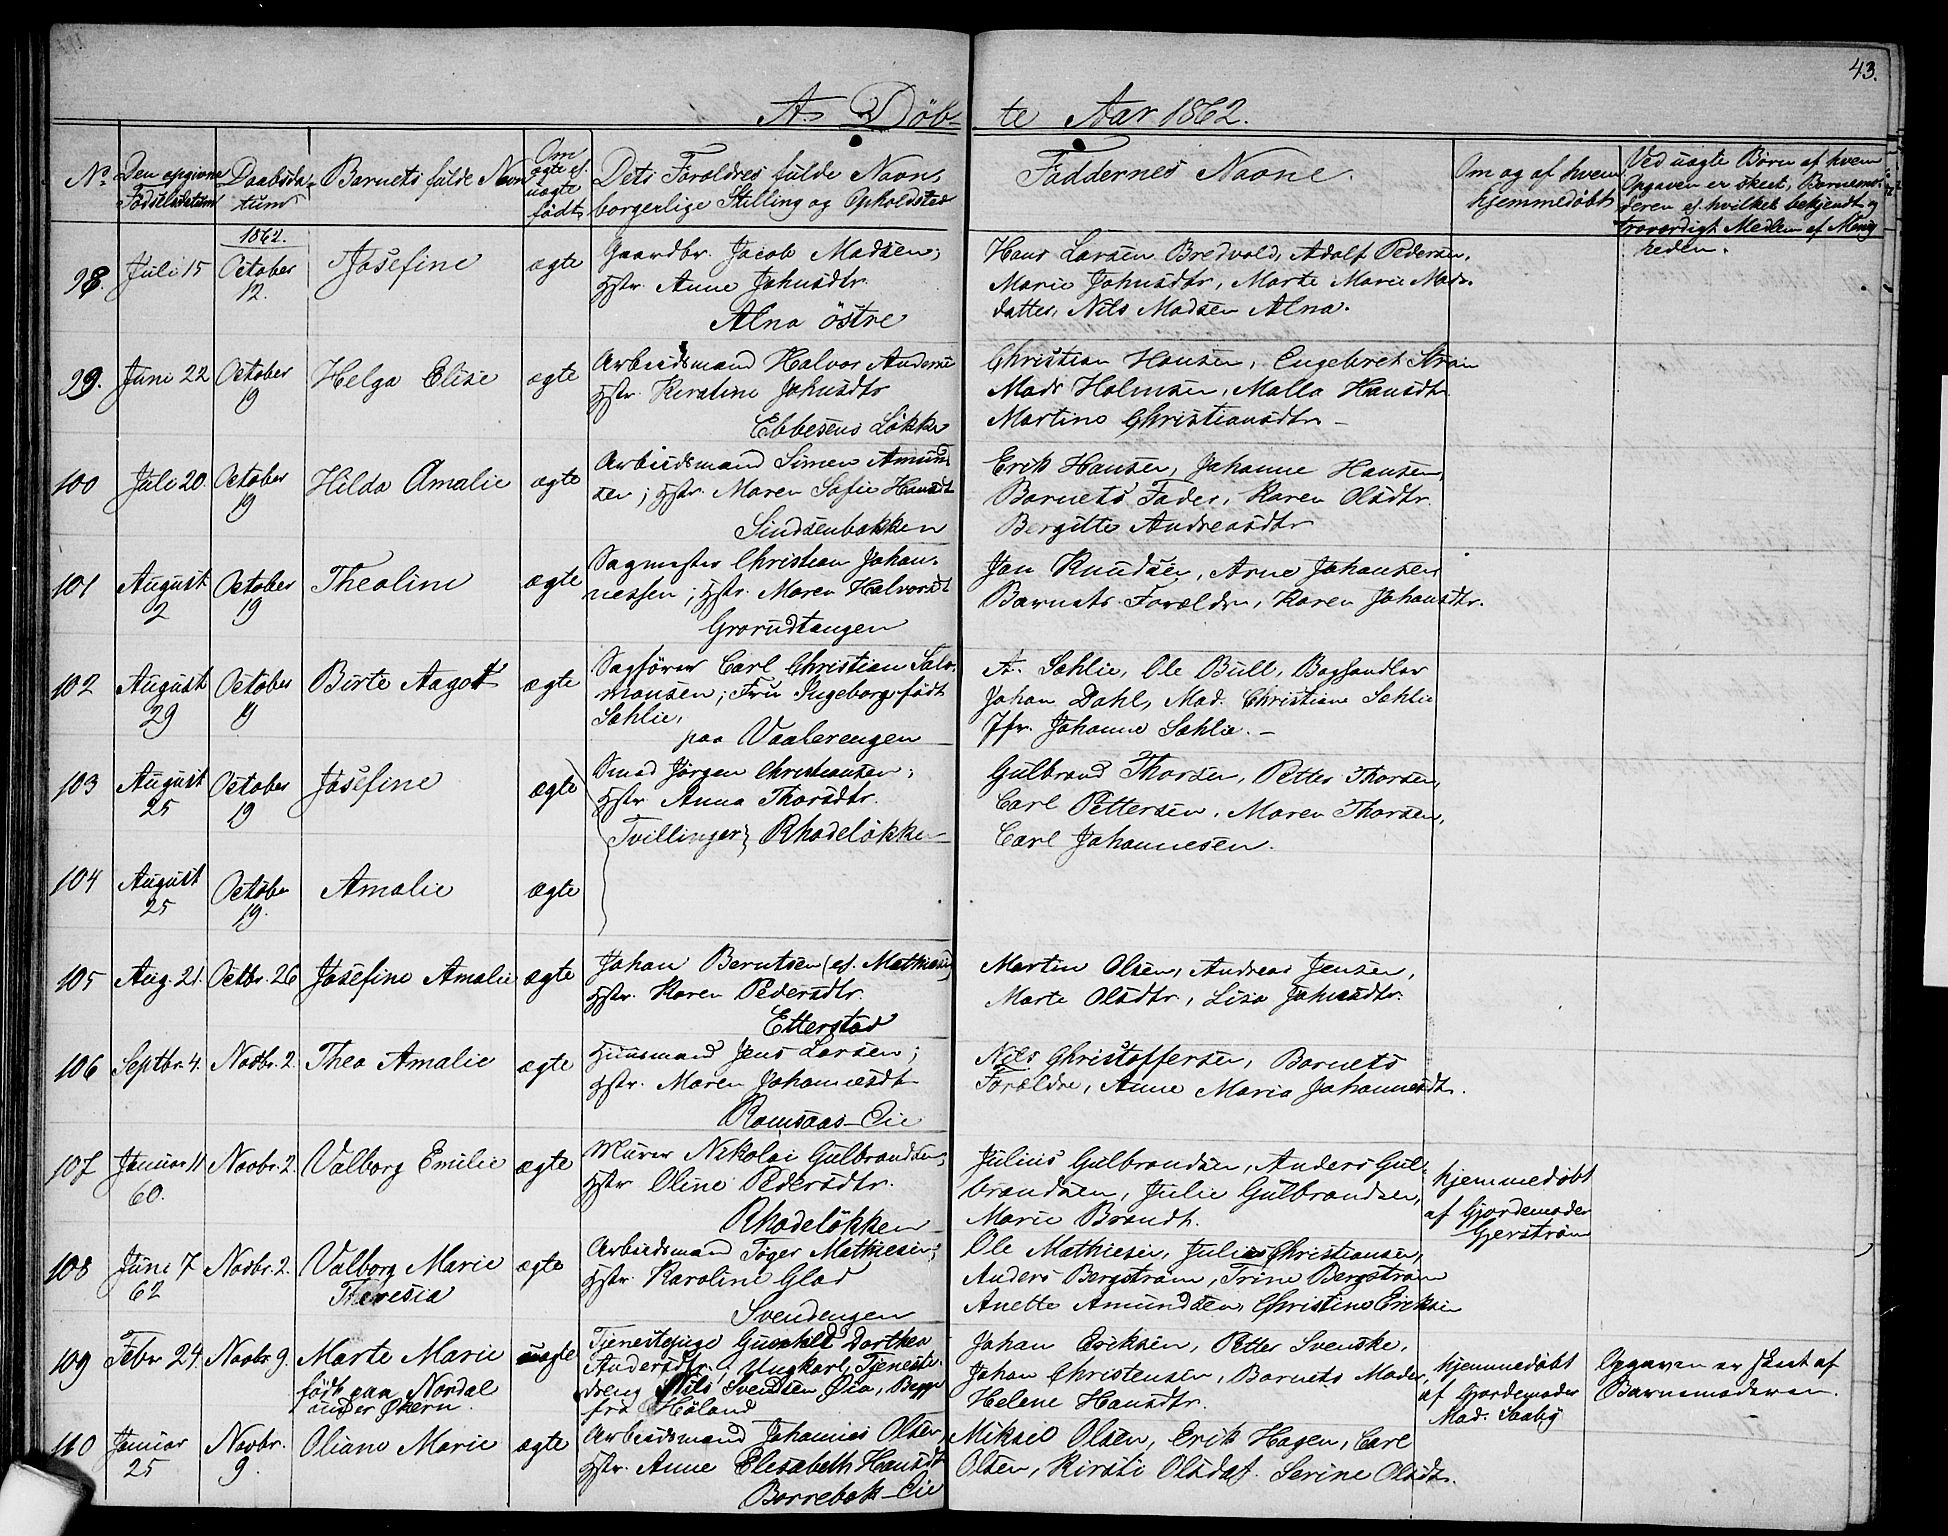 43.
A. Döb- te Aar 1862.
No. Den opgivne Fødselsdatum Daabsda- tum Barnets fulde Navn Om ægte el. uægte født Dets Forældres fulde Navn, borgerlige Stilling og Opholdsted Faddernes Navne. Om og af hvem hjemmedøbt Ved uægte Børn af hvem Opgaven er skeet, Barnemo- deren el. hvilket bekjendt og troværdigt Medlem af Menig- heden.
1862.
98. Juli 15 October 12. Josefine ægte Gaardbr. Jacob Madsen;
Hstr. Anne Johnsdtr.
Alna östre
Hans Larsen Bredvold, Adolf Pedersen,
Marie Johnsdtr, Marte Marie Mads-
datter, Nils Madsen Alna.
99. Juni 22 October 19 Helga Elise ægte Arbeidsmand Halvor Anderse
Hstr. Kerstine Johnsdtr
Ebbesens Løkke
Christian Hansen, Engebret Strøm
Mads Holmsen, Malla Hansdtr
Martine Christiansdtr -
100 Juli 20. October 19 Hilda Amalie ægte Arbeidsmand Simen Amund-
sen; Hstr. Maren Sofie Hansdt
Sindsenbakken
Erik Hansen, Johanne Hansen,
Barnets Fader, Karen Olsdtr
Bergitte Andreasdtr
101 August 2 October 19 Theoline ægte Sagmester Christian Johan-
nessen; Hstr. Maren Halvorsdt
Grorudtangen
Jon Knudsen, Arne Johansen
Barnets Forældre, Karen Johansdtr.
102 August 29 October 19 Birte Aagot ægte Sagfører Carl Christian Salo-
monsen; Fru Ingeborg født
Sehlie,
paa Vaalerengen
A. Sehlie, Ole Bull, Boghandler
Johan Dahl, Mad. Christiane Sehlie
Jfr. Johanne Sehlie. -
103 August 25 October 19 Josefine ægte Smed Jörgen Christiansen;
Hstr. Anna Thorsdtr.
Tvillinger Rhodeløkken
Gulbrand Thorsen, Petter Thorsen,
Carl Pettersen, Maren Thorsen,
Carl Johannesen.
104 August 25 October 19. Amalie ægte
105 Aug. 21. Octbr. 26 Josefine Amalie ægte Johan Berntsen (el. Mathisen)
Hstr. Karen Pedersdtr.
Etterstad
Martin Olsen, Andreas Jensen,
Marte Olsdtr, Lisa Johnsdtr.
106 Septbr. 4. Novbr. 2. Thea Amalie ægte Huusmand Jens Larsen;
Hstr. Maren Johannesdt
Romsaas-Eie
Nils Christoffersen, Barnets
Forældre, Anne Maria Johannesdt.
107 Januar 11 60. Novbr. 2. Valborg Emilie ægte Murer Nikolai Gulbrandsen;
Hstr Oline Pedersdtr.
Rhodeløkken
Julius Gulbrandsen, Anders Gul-
brandsen, Julie Gulbrandsen,
Marie Brandt.
hjemmedøbt
af Gjordemoder
Gjerstrøm
108 Juni 7 62 Novbr. 2. Valborg Marie
Theresia
ægte Arbeidsmand Tøger Mathiesen;
Hstr. Karoline Glad
Svendengen
Ole Mathiesen, Julius Christiansen,
Anders Bergstrøm, Trine Bergstrøm
Anette Amundsen, Christine Eriksen
109 Febr 24. Novbr. 9. Marte Marie
født paa Nordal
under Økern.
uægte Tjenestepige Gunhild Dorthea
Andersdtr, Ungkarl, Tjeneste-
dreng Nils Svendsen Øia, Begge
fra Höland
Johan Eriksen, Petter Svenske,
Johan Christensen, Barnets Moder,
Helene Hansdtr.
hjemmedøbt
af Gjordemoder
Mad. Saaby
Opgaven er skeet af
Barnemoderen.
110 Januar 25 Novbr. 9. Oliane Marie ægte Arbeidsmand Johannes Olsen
Hstr. Anne Elisabeth Hansdt
Borrebæk-Eie
Mikael Olsen, Erik Hagen, Carl
Olsen, Kirsti Olsdat. Serine Olsdtr.